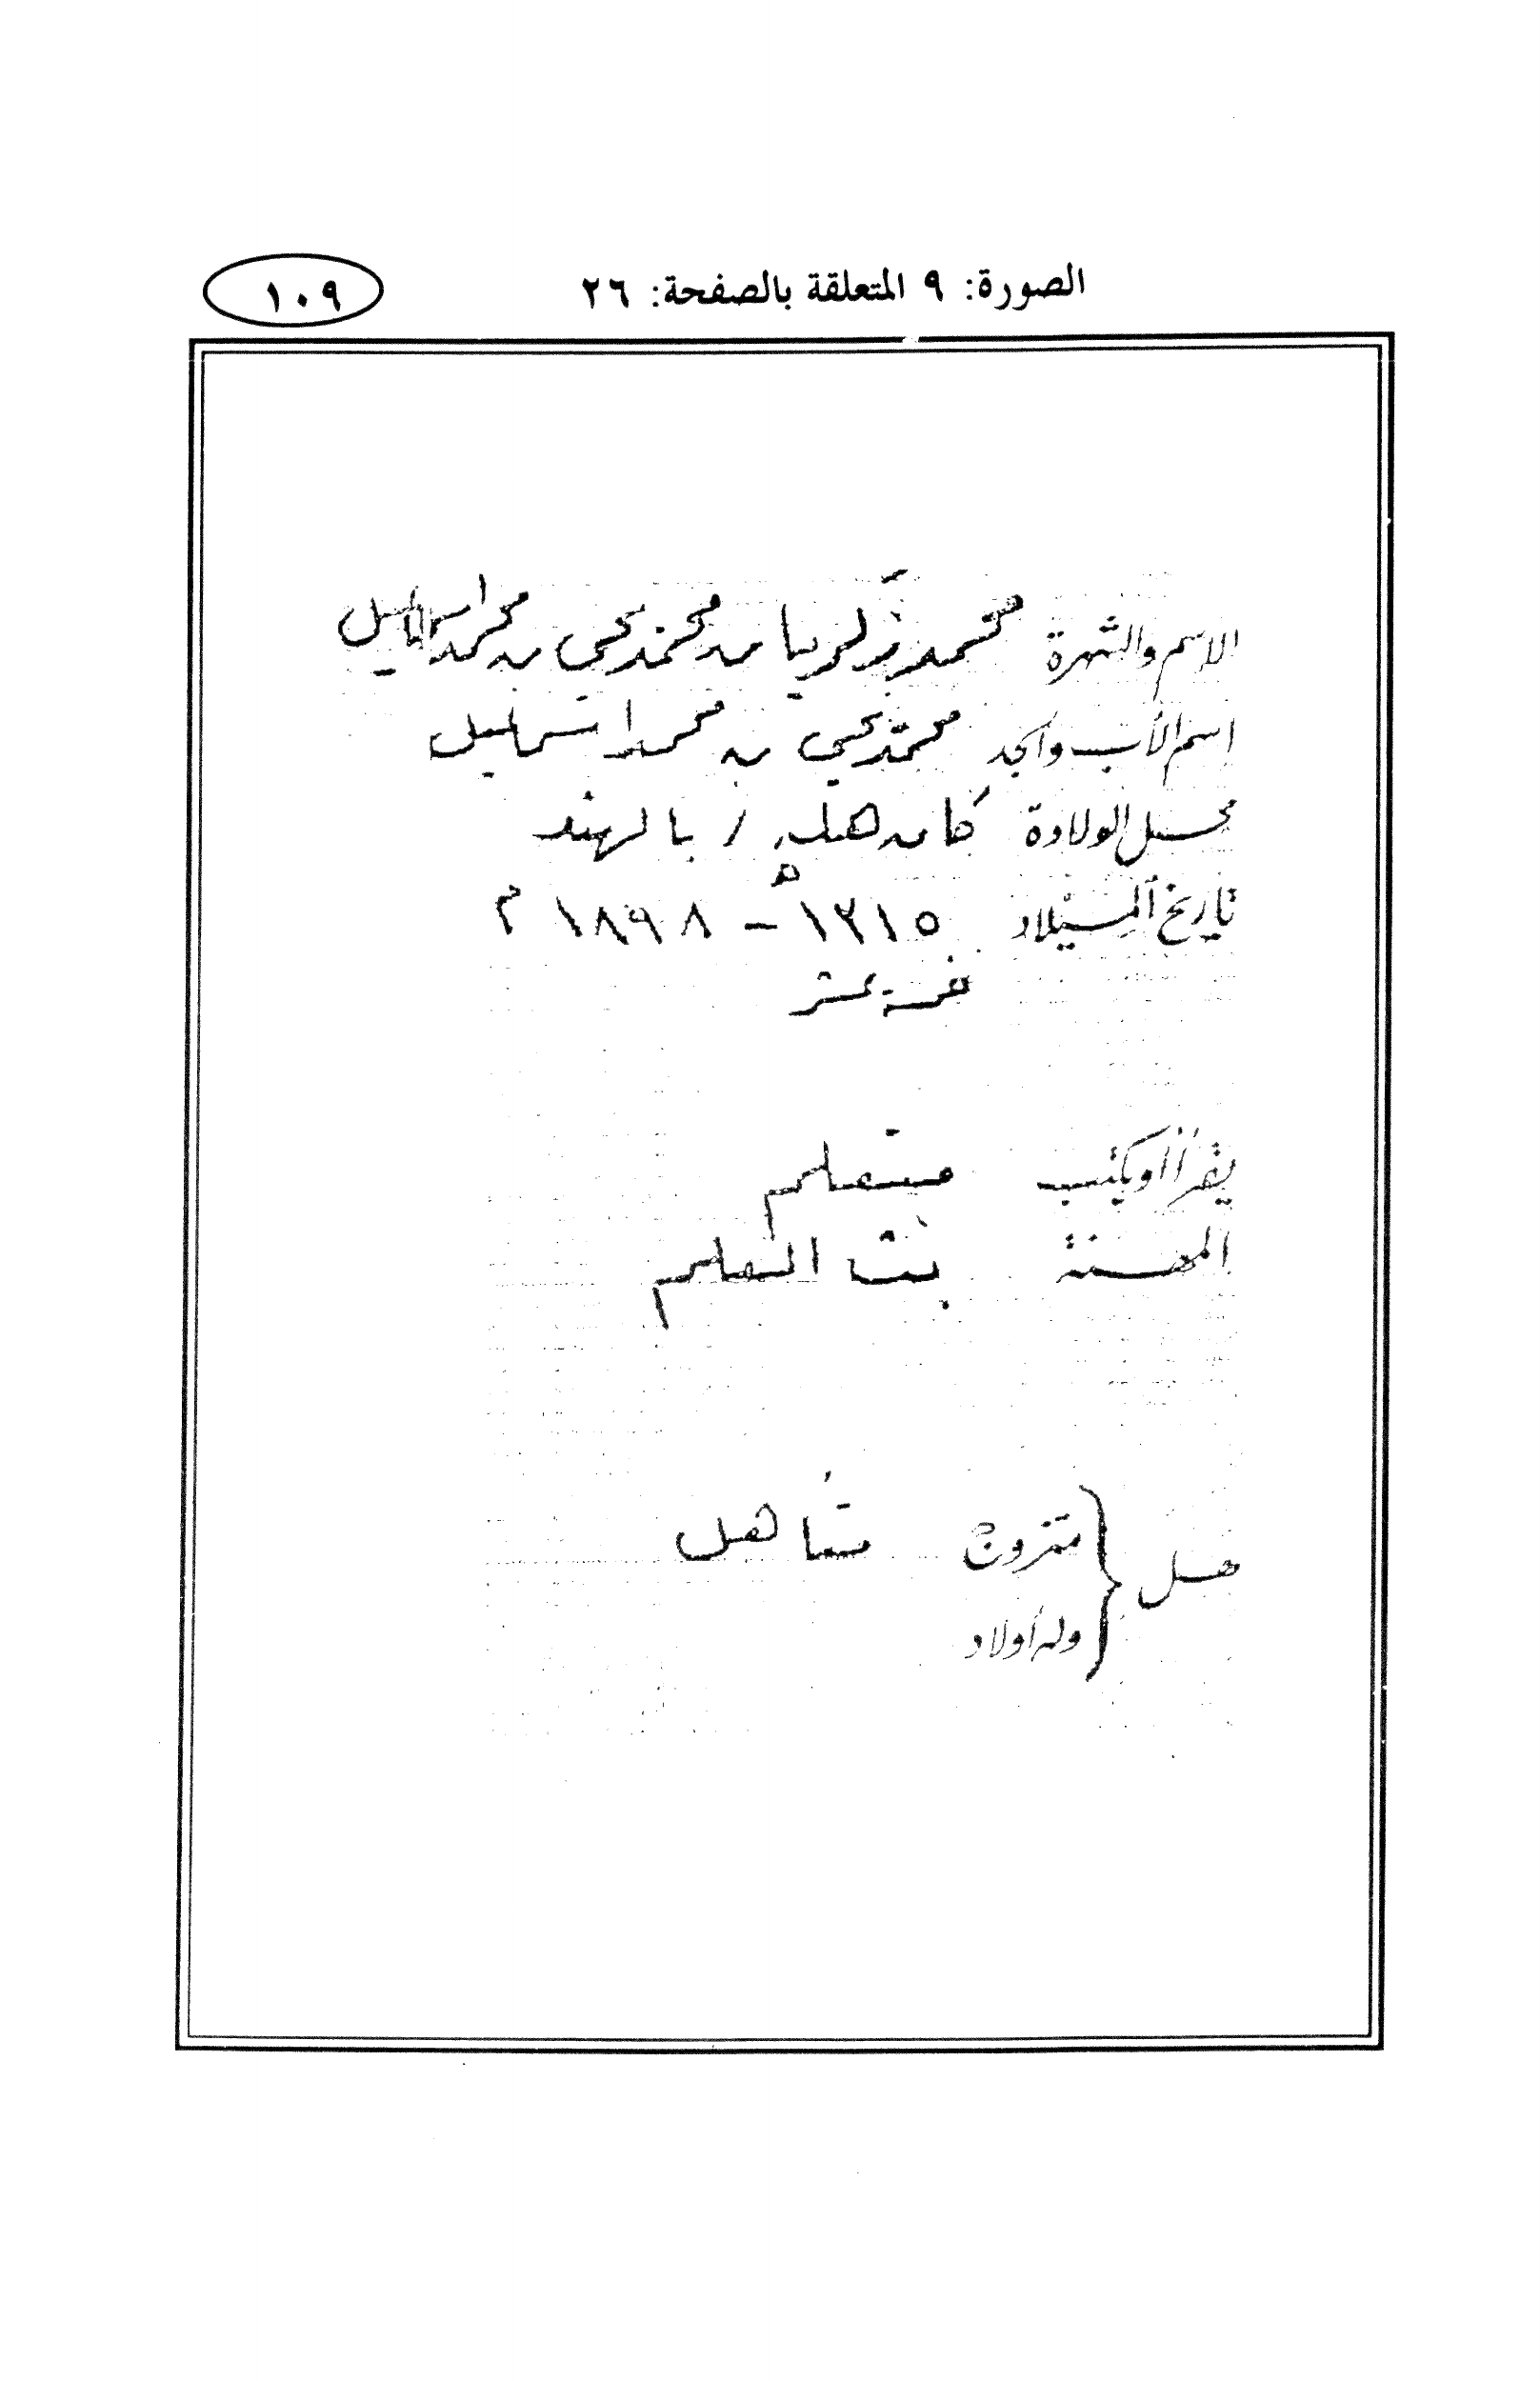 الصورة: ٩ المتعلقة بالصفحة: ٢٦
١٠٩
الاسم والشهرة محمد زكريا بن محمد يحيى بن محمد اسماعيل
اسم الأب والجد محمد يحيى بن محمد اسماعيل
محل الولادة / بالهند
تاريخ الميلاد ١٣١٥ هـ - ١٨٩٨ م
خمسة عشر
يقرأ أو يكتب متعلم
المهنة التعليم
هل متزوج متأهل
وله أولاد